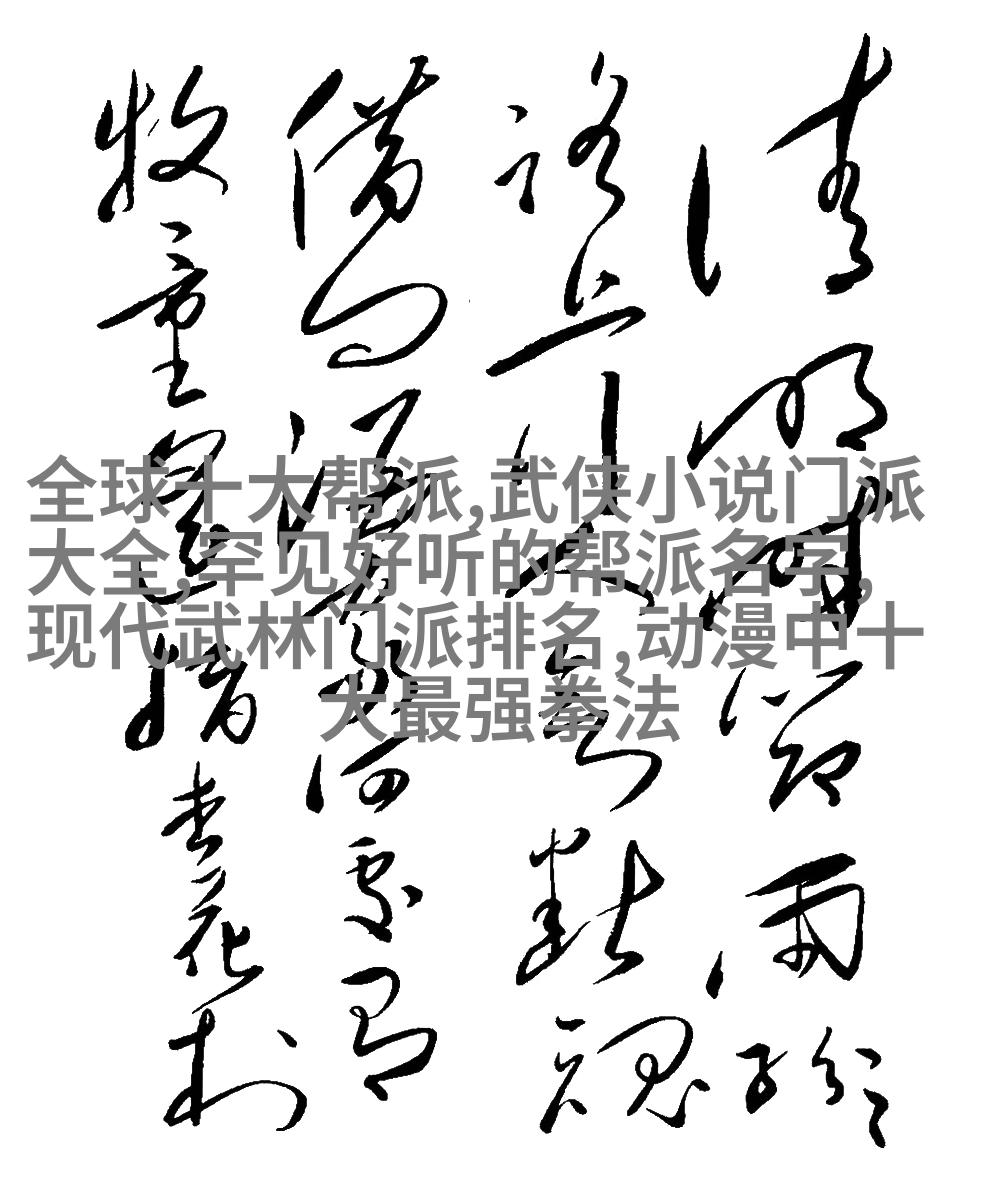 清明時節雨紛々
路上行人欲斷魂
借问酒家何處有
牧童遙指杏花村
全球十大帮派,武侠小说门派
大全,罕见好听的帮派名字,
现代武林门派排名,动漫中十
大最强拳法